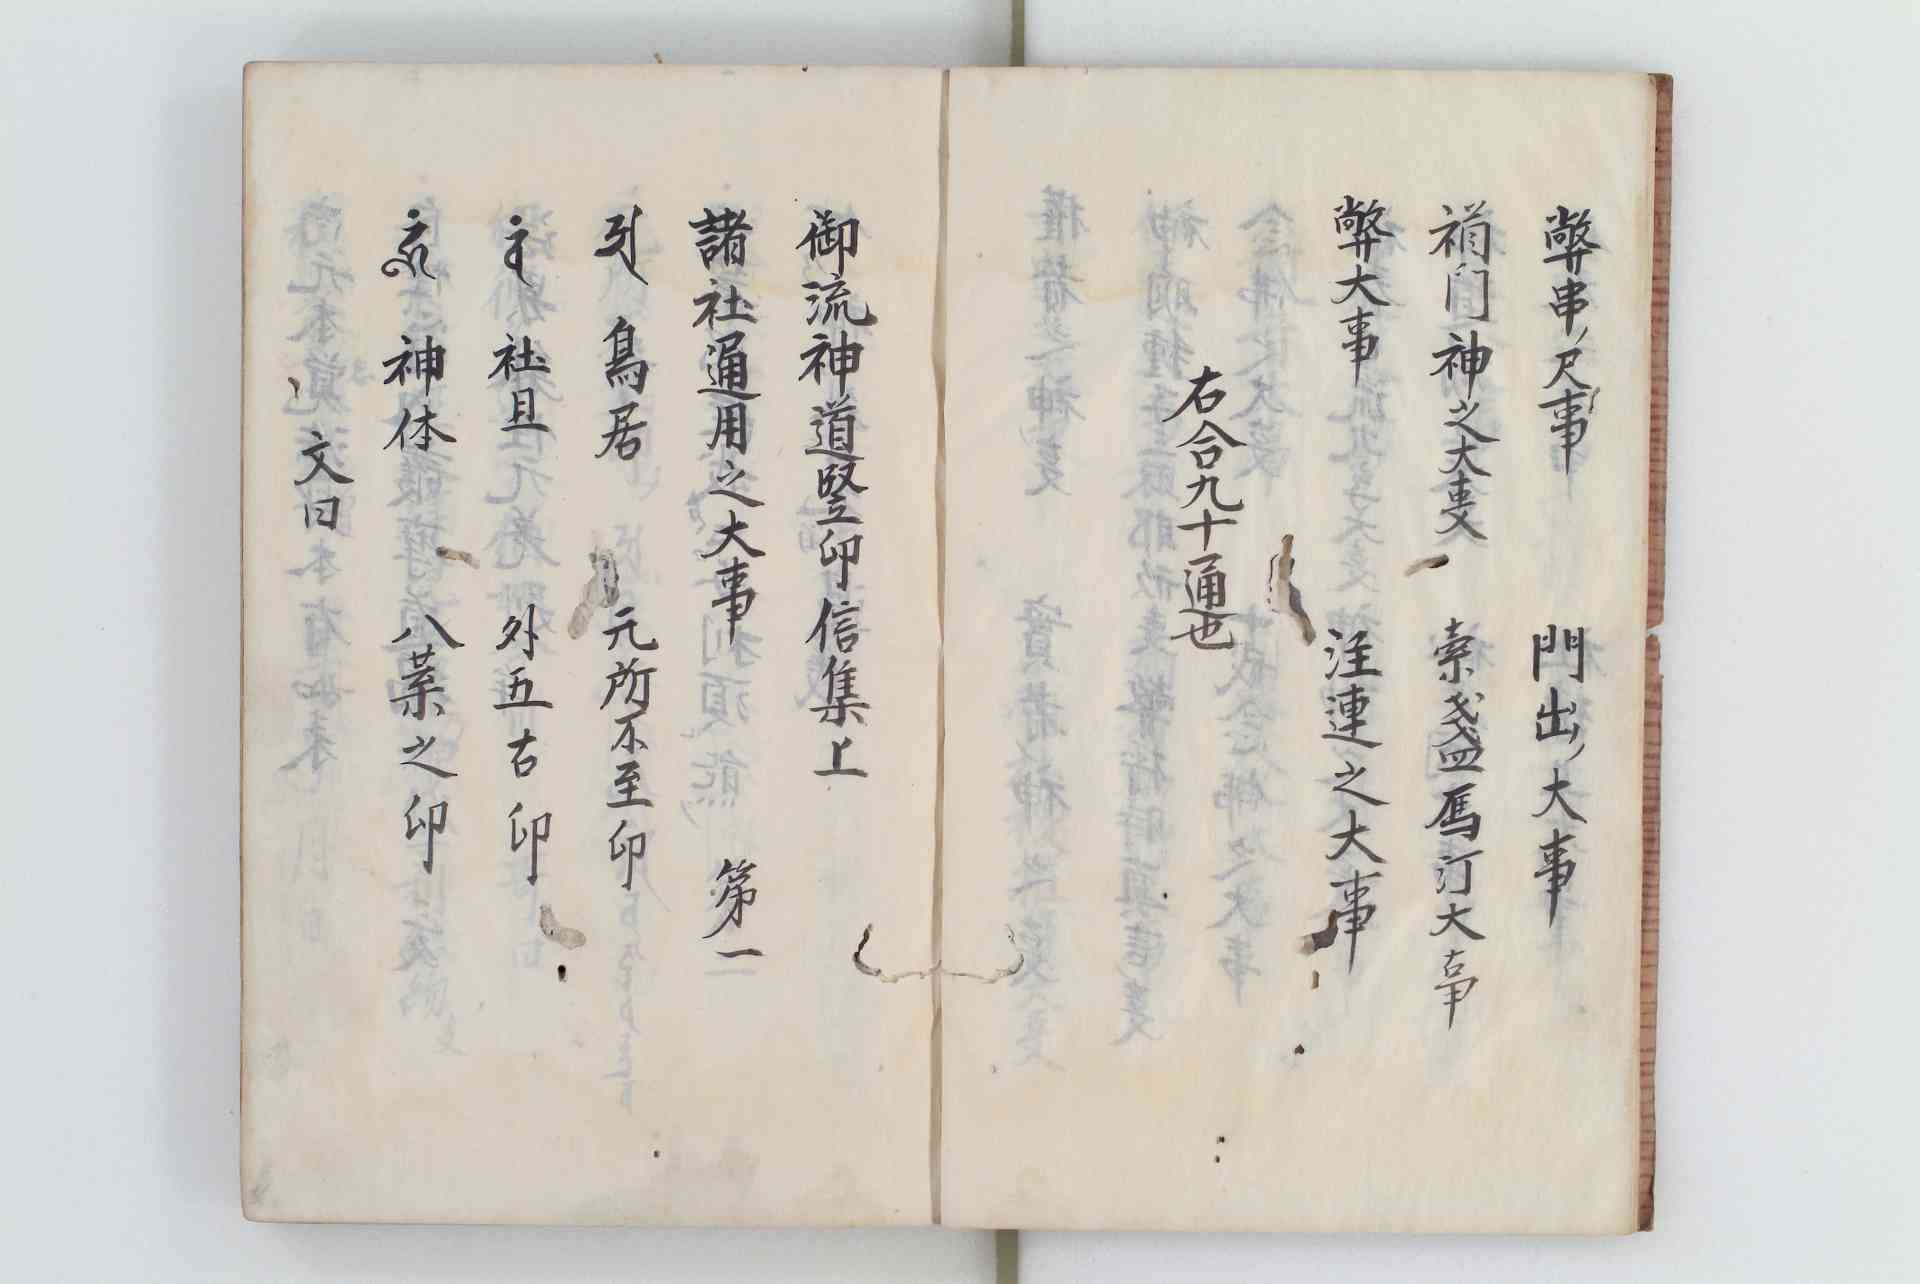 弊串ノ尺事　門出ノ大事
禎門神之大事　索盞馮汀大事
弊大事　注連之大事
右合九十通也
御流神道竪印信集上
諸社通用之大事　第一
鳥居　元所不至印
社且　外五古印
神体　八葉之印
文曰